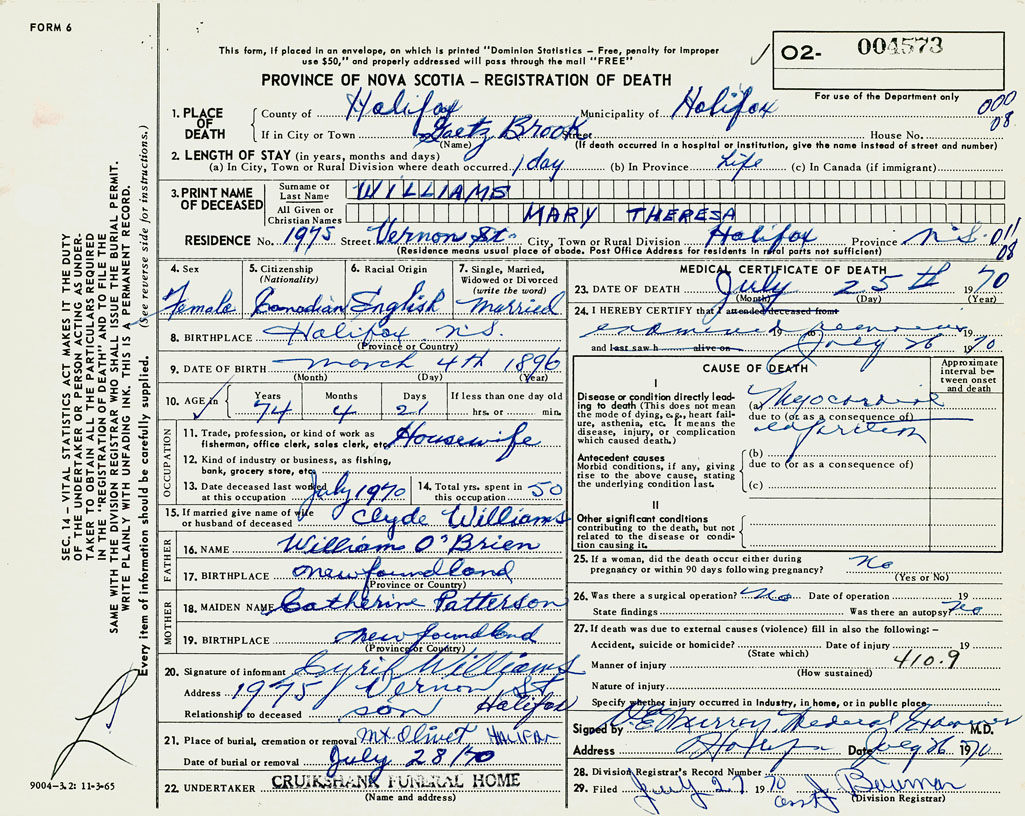 FORM 6
This form, if placed in an envelope, on which is printed "Dominion Statistics – Free, penalty for improper
use $50," and properly addressed will pass through the mail "FREE"
PROVINCE OF NOVA SCOTIA – REGISTRATION OF DEATH
O2- 004573
For use of the Department only
000
08
1. PLACE OF DEATH
County of Halifax Municipality of Halifax
If in City or Town Gaetz Brook Street House No.
(Name) (If death occurred in a hospital or institution, give the name instead of street and number)
2. LENGTH OF STAY (in years, months and days)
(a) In City, Town or Rural Division where death occurred 1 day (b) In Province Life (c) In Canada (if immigrant)
3. PRINT NAME OF DECEASED
Surname or Last Name WILLIAMS
All Given or Christian Names MARY THERESA
RESIDENCE No. 1975 Street Vernon St. City, Town or Rural Division Halifax Province N.S. 011
08
(Residence means usual place of abode. Post Office Address for residents in rural parts not sufficient)
4. Sex Female
5. Citizenship (Nationality) Canadian
6. Racial Origin English
7. Single, Married, Widowed or Divorced (write the word) Married
8. BIRTHPLACE Halifax N.S.
(Province or Country)
9. DATE OF BIRTH March 4th 1896
(Month) (Day) (Year)
10. AGE in Years 74 Months 4 Days 21 If less than one day old hrs. or min.
OCCUPATION
11. Trade, profession, or kind of work as fisherman, office clerk, sales clerk, etc. Housewife
12. Kind of industry or business, as fishing, bank, grocery store, etc.
13. Date deceased last worked at this occupation July 1970
14. Total yrs. spent in this occupation 50
15. If married give name of wife or husband of deceased Clyde Williams
FATHER
16. NAME William O'Brien
17. BIRTHPLACE Newfoundland
(Province or Country)
MOTHER
18. MAIDEN NAME Catherine Patterson
19. BIRTHPLACE Newfoundland
(Province or Country)
20. Signature of informant Cyril Williams
Address 1975 Vernon St Halifax
Relationship to deceased son
21. Place of burial, cremation or removal Mt. Olivet HALIFAX
Date of burial or removal July 28/70
22. UNDERTAKER CRUIKSHANK FUNERAL HOME
(Name and address)
MEDICAL CERTIFICATE OF DEATH
23. DATE OF DEATH July 25th 1970
(Month) (Day) (Year)
24. I HEREBY CERTIFY that I attended deceased from
examined remains 19
and last saw h alive on July 26 1970
CAUSE OF DEATH
Approximate interval between onset and death
I
Disease or condition directly leading to death (This does not mean the mode of dying, e.g., heart failure, asthenia, etc. It means the disease, injury, or complication which caused death.)
(a) Myocardial
due to (or as a consequence of)
infarction
Antecedent causes
Morbid conditions, if any, giving rise to the above cause, stating the underlying condition last.
(b)
due to (or as a consequence of)
(c)
II
Other significant conditions contributing to the death, but not related to the disease or condition causing it.
25. If a woman, did the death occur either during pregnancy or within 90 days following pregnancy? No
(Yes or No)
26. Was there a surgical operation? No Date of operation 19
State findings Was there an autopsy? No
27. If death was due to external causes (violence) fill in also the following: –
Accident, suicide or homicide? Date of injury 19
(State which)
Manner of injury 410.9
(How sustained)
Nature of injury
Specify whether injury occurred in industry, in home, or in public place
Signed by Murray Medical Examiner M.D.
Address Halifax Date July 26 1970
28. Division Registrar's Record Number
29. Filed July 27 1970 asst J. Bowman
(Division Registrar)
SEC. 14 – VITAL STATISTICS ACT MAKES IT THE DUTY
OF THE UNDERTAKER OR PERSON ACTING AS UNDER-
TAKER TO OBTAIN ALL THE PARTICULARS REQUIRED
IN THE "REGISTRATION OF DEATH" AND TO FILE THE
SAME WITH THE DIVISION REGISTRAR WHO SHALL ISSUE THE BURIAL PERMIT.
WRITE PLAINLY WITH UNFADING INK. THIS IS A PERMANENT RECORD.
Every item of information should be carefully supplied. (See reverse side for instructions.)
9004-3.2: 11-3-65